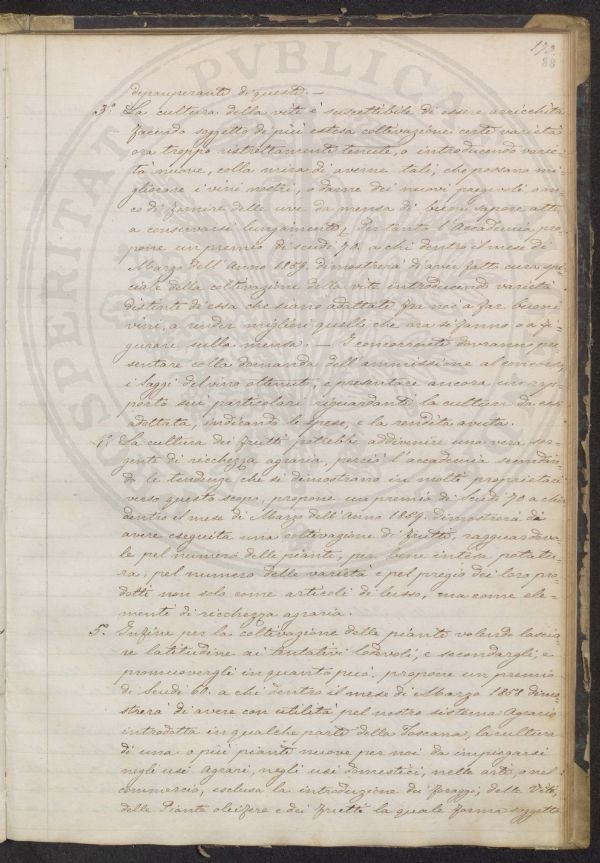 173
88
depauperanti di questi. —
3.° La cultura della vite è suscettibile di essere arricchita
facendo soggetto di più estesa coltivazione certe varietà
ora troppo ristrettamente tenute, o introducendo varie-
tà nuove, colla mira di averne tali, che possano mi-
gliorare i vini nostri, o darne dei nuovi pregevoli o an-
co di fornire delle uve da mensa di buon sapore, atte
a conservarsi lungamente. Pertanto l'Accademia pro-
pone un premio di scudi 70. a chi dentro il mese di
Marzo dell'Anno 1859. dimostrerà d'aver fatto cura spe-
ciale della coltivazione della vite introducendo varietà
distinte di essa che siano adattate fra noi a far buoni
vini, a render migliori quelli che ora si fanno o a fi-
gurare sulla mensa. — I concorrenti dovranno pre-
sentare colla domanda dell'ammissione al concorso
i saggi del vino ottenuto, e presentare ancora un rap-
porto sui particolari riguardanti la cultura da essi
adottata, indicando le spese, e la rendita avuta.
4.° La cultura dei frutti potrebbe addivenire una vera sor-
gente di ricchezza agraria, perciò l'accademia secondan-
do le tendenze che si dimostrano in molti proprietari
verso questo scopo, propone un premio di Scudi 70 a chi
dentro il mese di Marzo dell'Anno 1859. dimostrerà di
avere eseguita una coltivazione di frutti, ragguardevo-
le pel numero delle piante, per bene intesa potatu-
ra, pel numero delle varietà e pel pregio dei loro pro-
dotti non solo come articoli di lusso, ma come ele-
menti di ricchezza agraria.
5. Infine per la coltivazione delle piante volendo lascia-
re latitudine ai tentativi lodevoli, e secondargli, e
promuovergli in quanto può, propone un premio
di Scudi 60. a chi dentro il mese di Marzo 1859 dimo-
strerà di avere con utilità pel nostro sistema Agrario
introdotta in qualche parte della Toscana, la cultura
di una o più piante nuove per noi da impiegarsi
negli usi Agrari, negli usi domestici, nelle arti, o nel
commercio, esclusa la introduzione dei foraggi, delle Viti,
delle Piante oleifere e dei frutti la quale forma soggetto